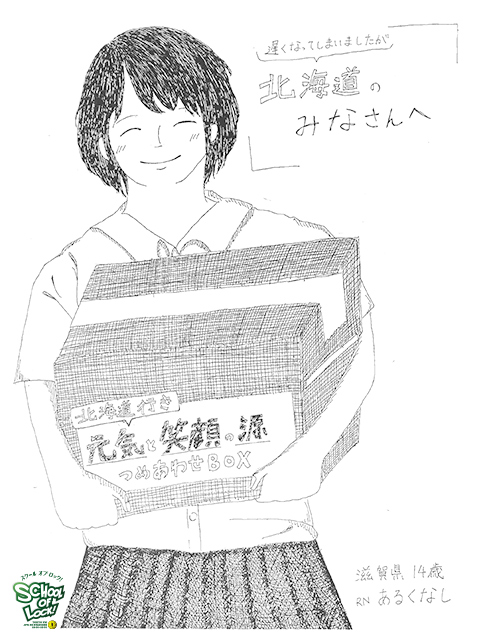 遅くなってしまいましたが
北海道の
みなさんへ
北海道行き
元気と笑顔の源
つめあわせBOX
滋賀県 14歳
RN あるくなし
スクール オブ ロック!
SCHOOL
OF
LOCK!